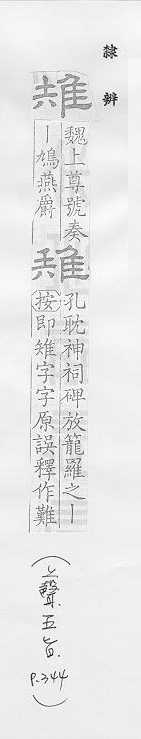 隸辨
雉
魏上尊號奏
丨鳩燕爵
雉
孔耽神祠碑放籠羅之丨
按即雉字字原誤釋作難
(上聲.五旨.
P.344)